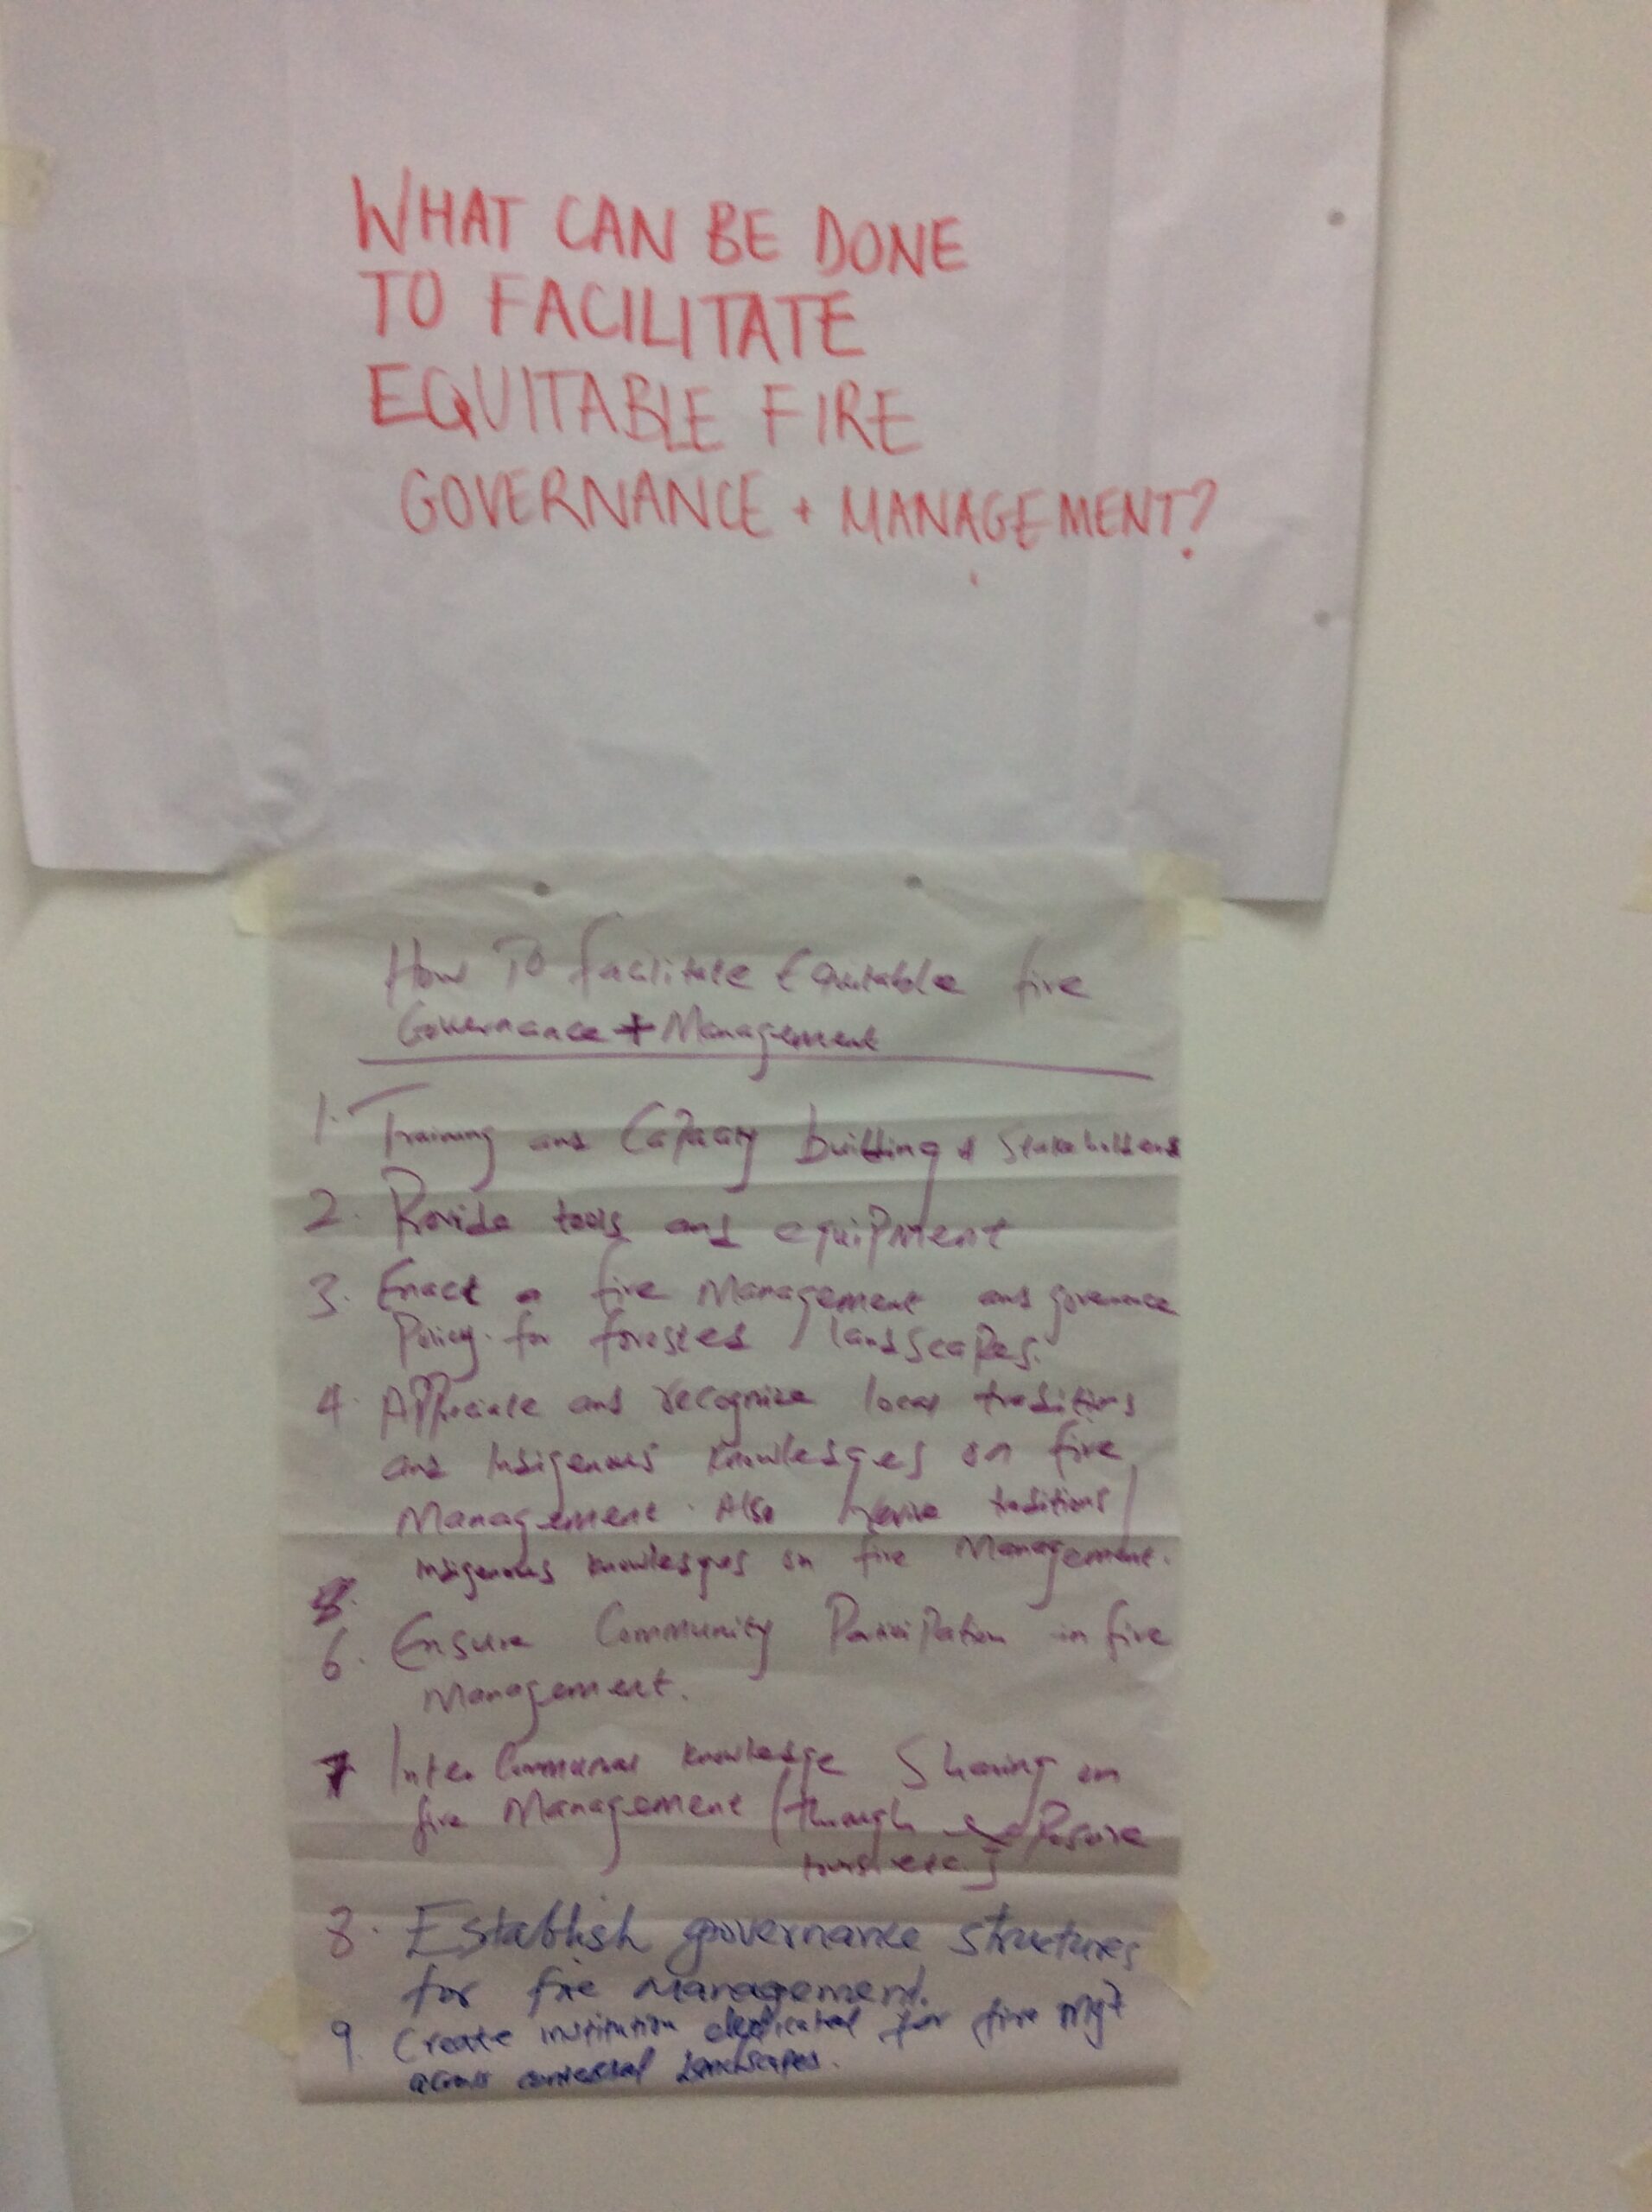 WHAT CAN BE DONE
TO FACILITATE
EQUITABLE FIRE
GOVERNANCE + MANAGEMENT?
How To facilitate Equitable fire
Governance + Management
1. Training and Capacity building of Stakeholders
2. Provide tools and equipment
3. Enact a fire Management and governance
Policy for forested landscapes.
4. Appreciate and recognize local traditions
and Indigenous knowledges on fire
Management. Also revive traditions/
indigenous knowledges on fire Management.
6. Ensure Community Participation in fire
Management.
7 Inter Communal knowledge Sharing on
fire Management (through exposure
tours etc.)
8. Establish governance structures
for fire Management.
9. Create institution dedicated for fire Mgt
across landscapes.